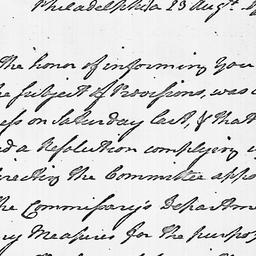 Philadelphia 23 Augt.
The honor of informing You
he subject of Provisions, was
ess on Saturday last, & that
d a Resolution complying
irecting the Committee appo
the Commissary's Departme
ry Measures for the purpos